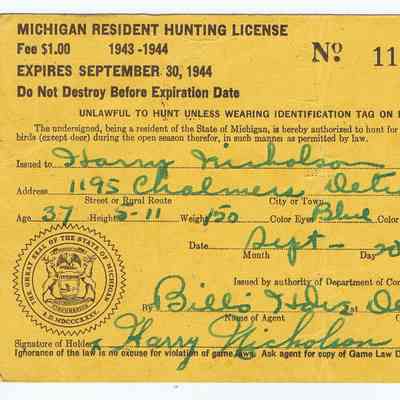 MICHIGAN RESIDENT HUNTING LICENSE
Fee $1.00 1943-1944 No. 11
EXPIRES SEPTEMBER 30, 1944
Do Not Destroy Before Expiration Date
UNLAWFUL TO HUNT UNLESS WEARING IDENTIFICATION TAG ON
The undersigned, being a resident of the State of Michigan, is hereby authorized to hunt for
birds (except deer) during the open season therefor, in such manner as permitted by law.
Issued to Harry Nicholson
Address 1195 Chalmers Detr
Street or Rural Route City or Town
Age 37 Height 5-11 Weight 150 Color Eyes Blue Color
Date Sept- 20
Month Day
Issued by authority of Department of Co
By Bill's
THE GREAT SEAL OF THE STATE OF MICHIGAN
A.D. MDCCCXXXV.
Signature of Holder Harry Nicholson
Ignorance of the law is no excuse for violation of game laws. Ask agent for copy of Game Law D